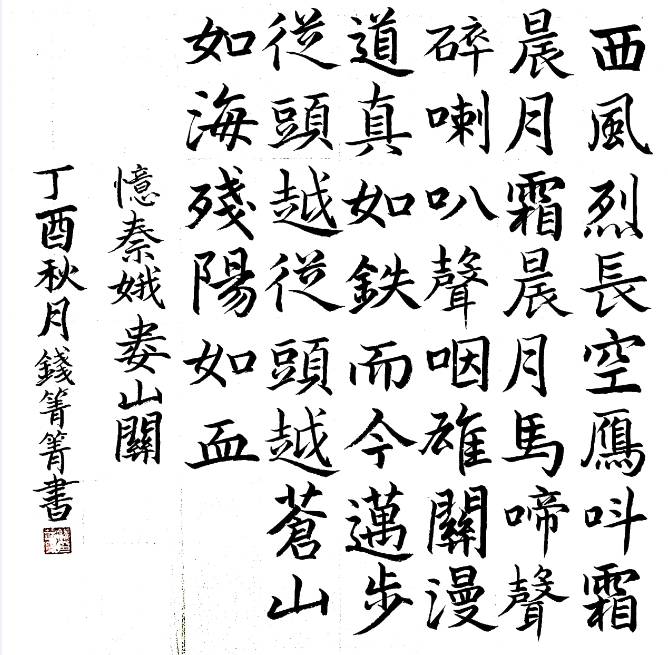 西風烈長空鴈呌霜
晨月霜晨月馬啼聲
碎喇叭聲咽雄關漫
道真如鉄而今邁步
従頭越従頭越蒼山
如海殘陽如血
憶秦娥婁山關
丁酉秋月錢箐箐書